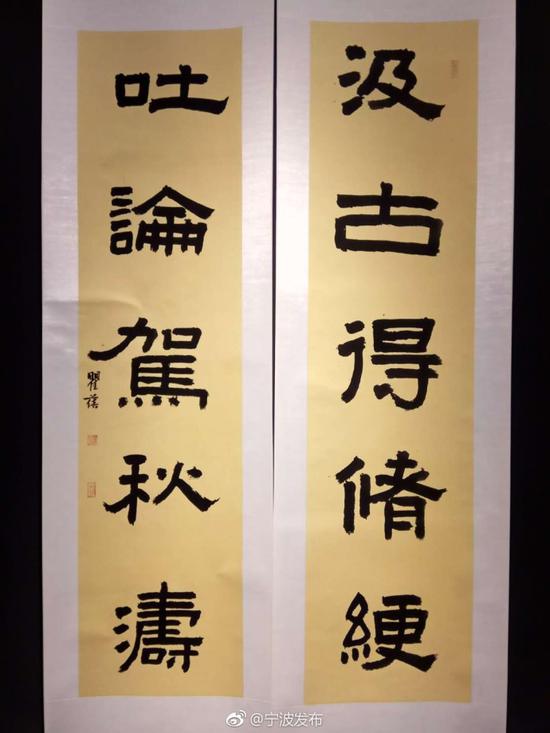 汲古得脩綆
吐論駕秋濤
瞿
@宁波发布